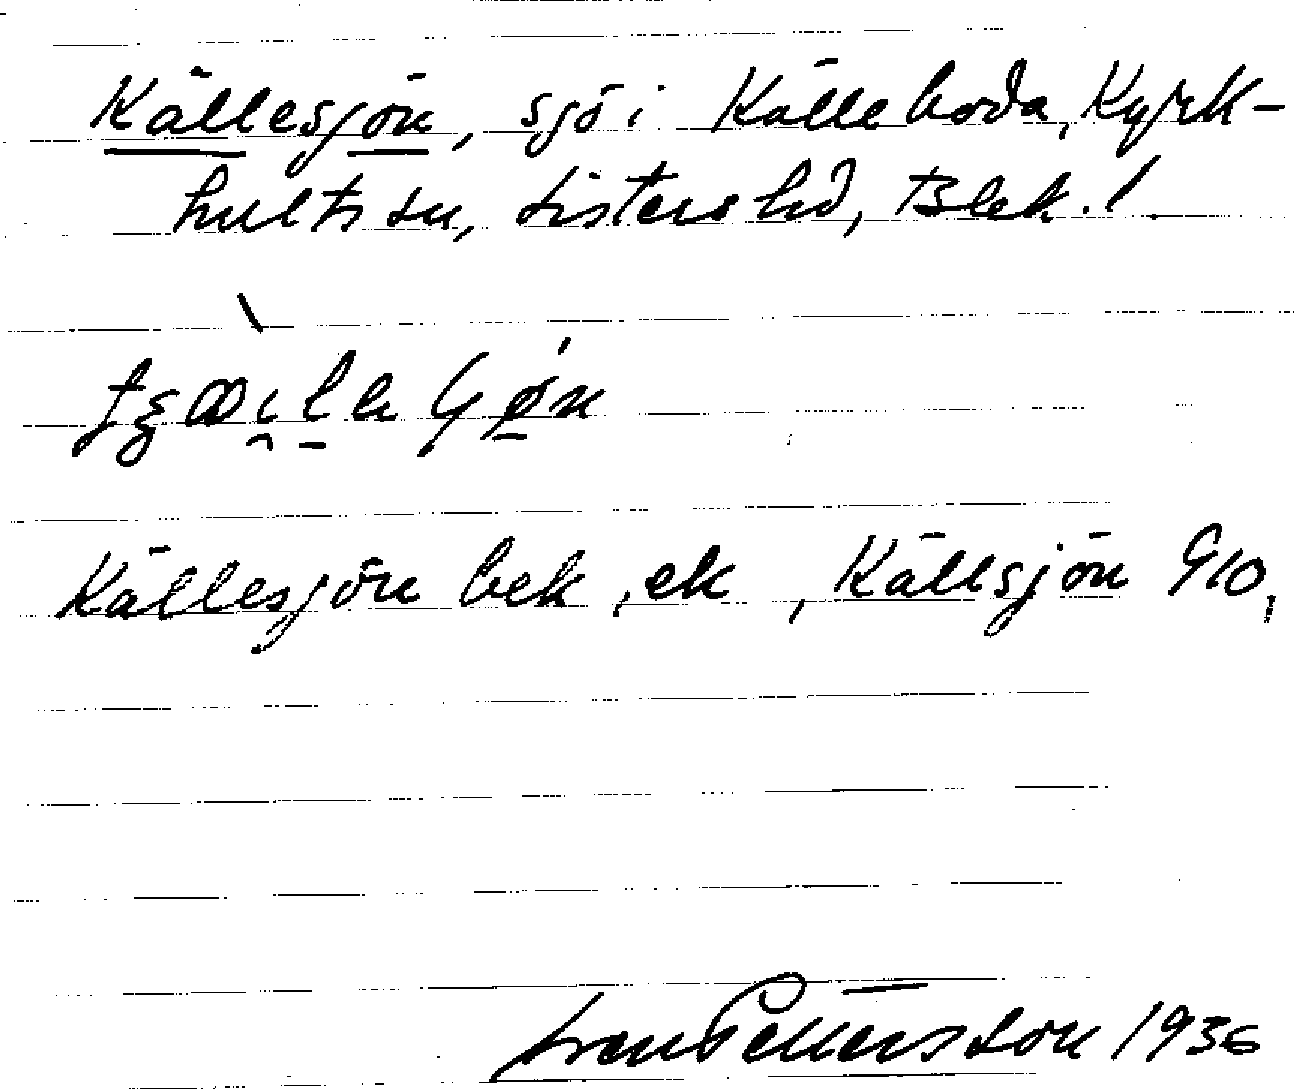 Källesjön, sjö i Källeboda, Kyrk-
hults sn, Listers hd, Blek. l.
Källesjön bek, ek, Källsjön G10,
Sven Pettersson 1936